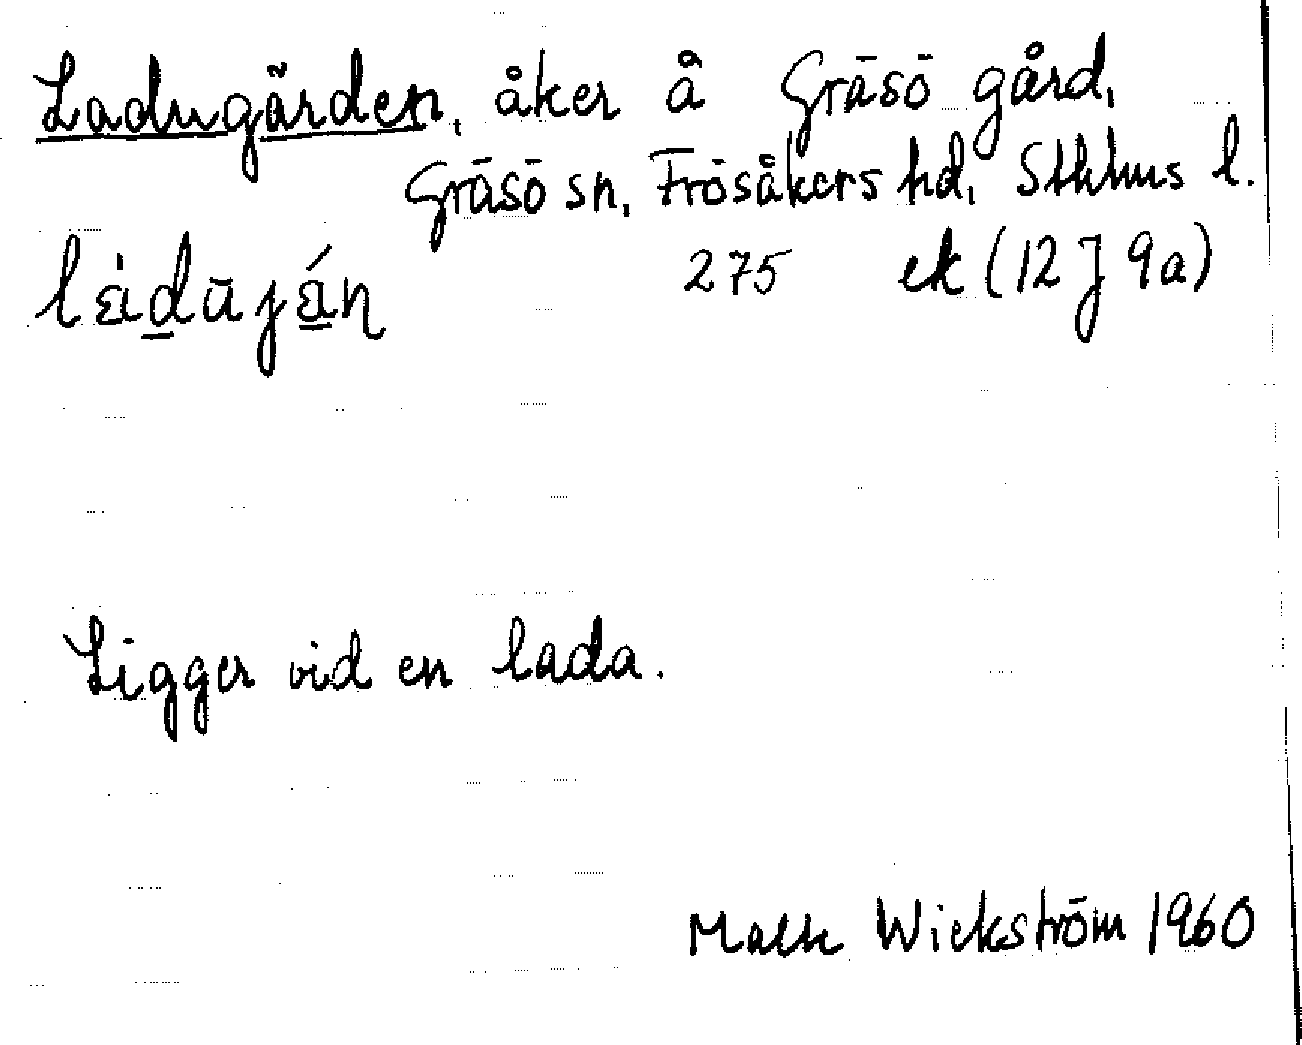 Ladugården, åker å Gräsö gård,
Gräsö sn, Frösåkers hd, Sthlms l.
275 ek (12 J 9a)
Ligger vid en lada.
Wickström 1960